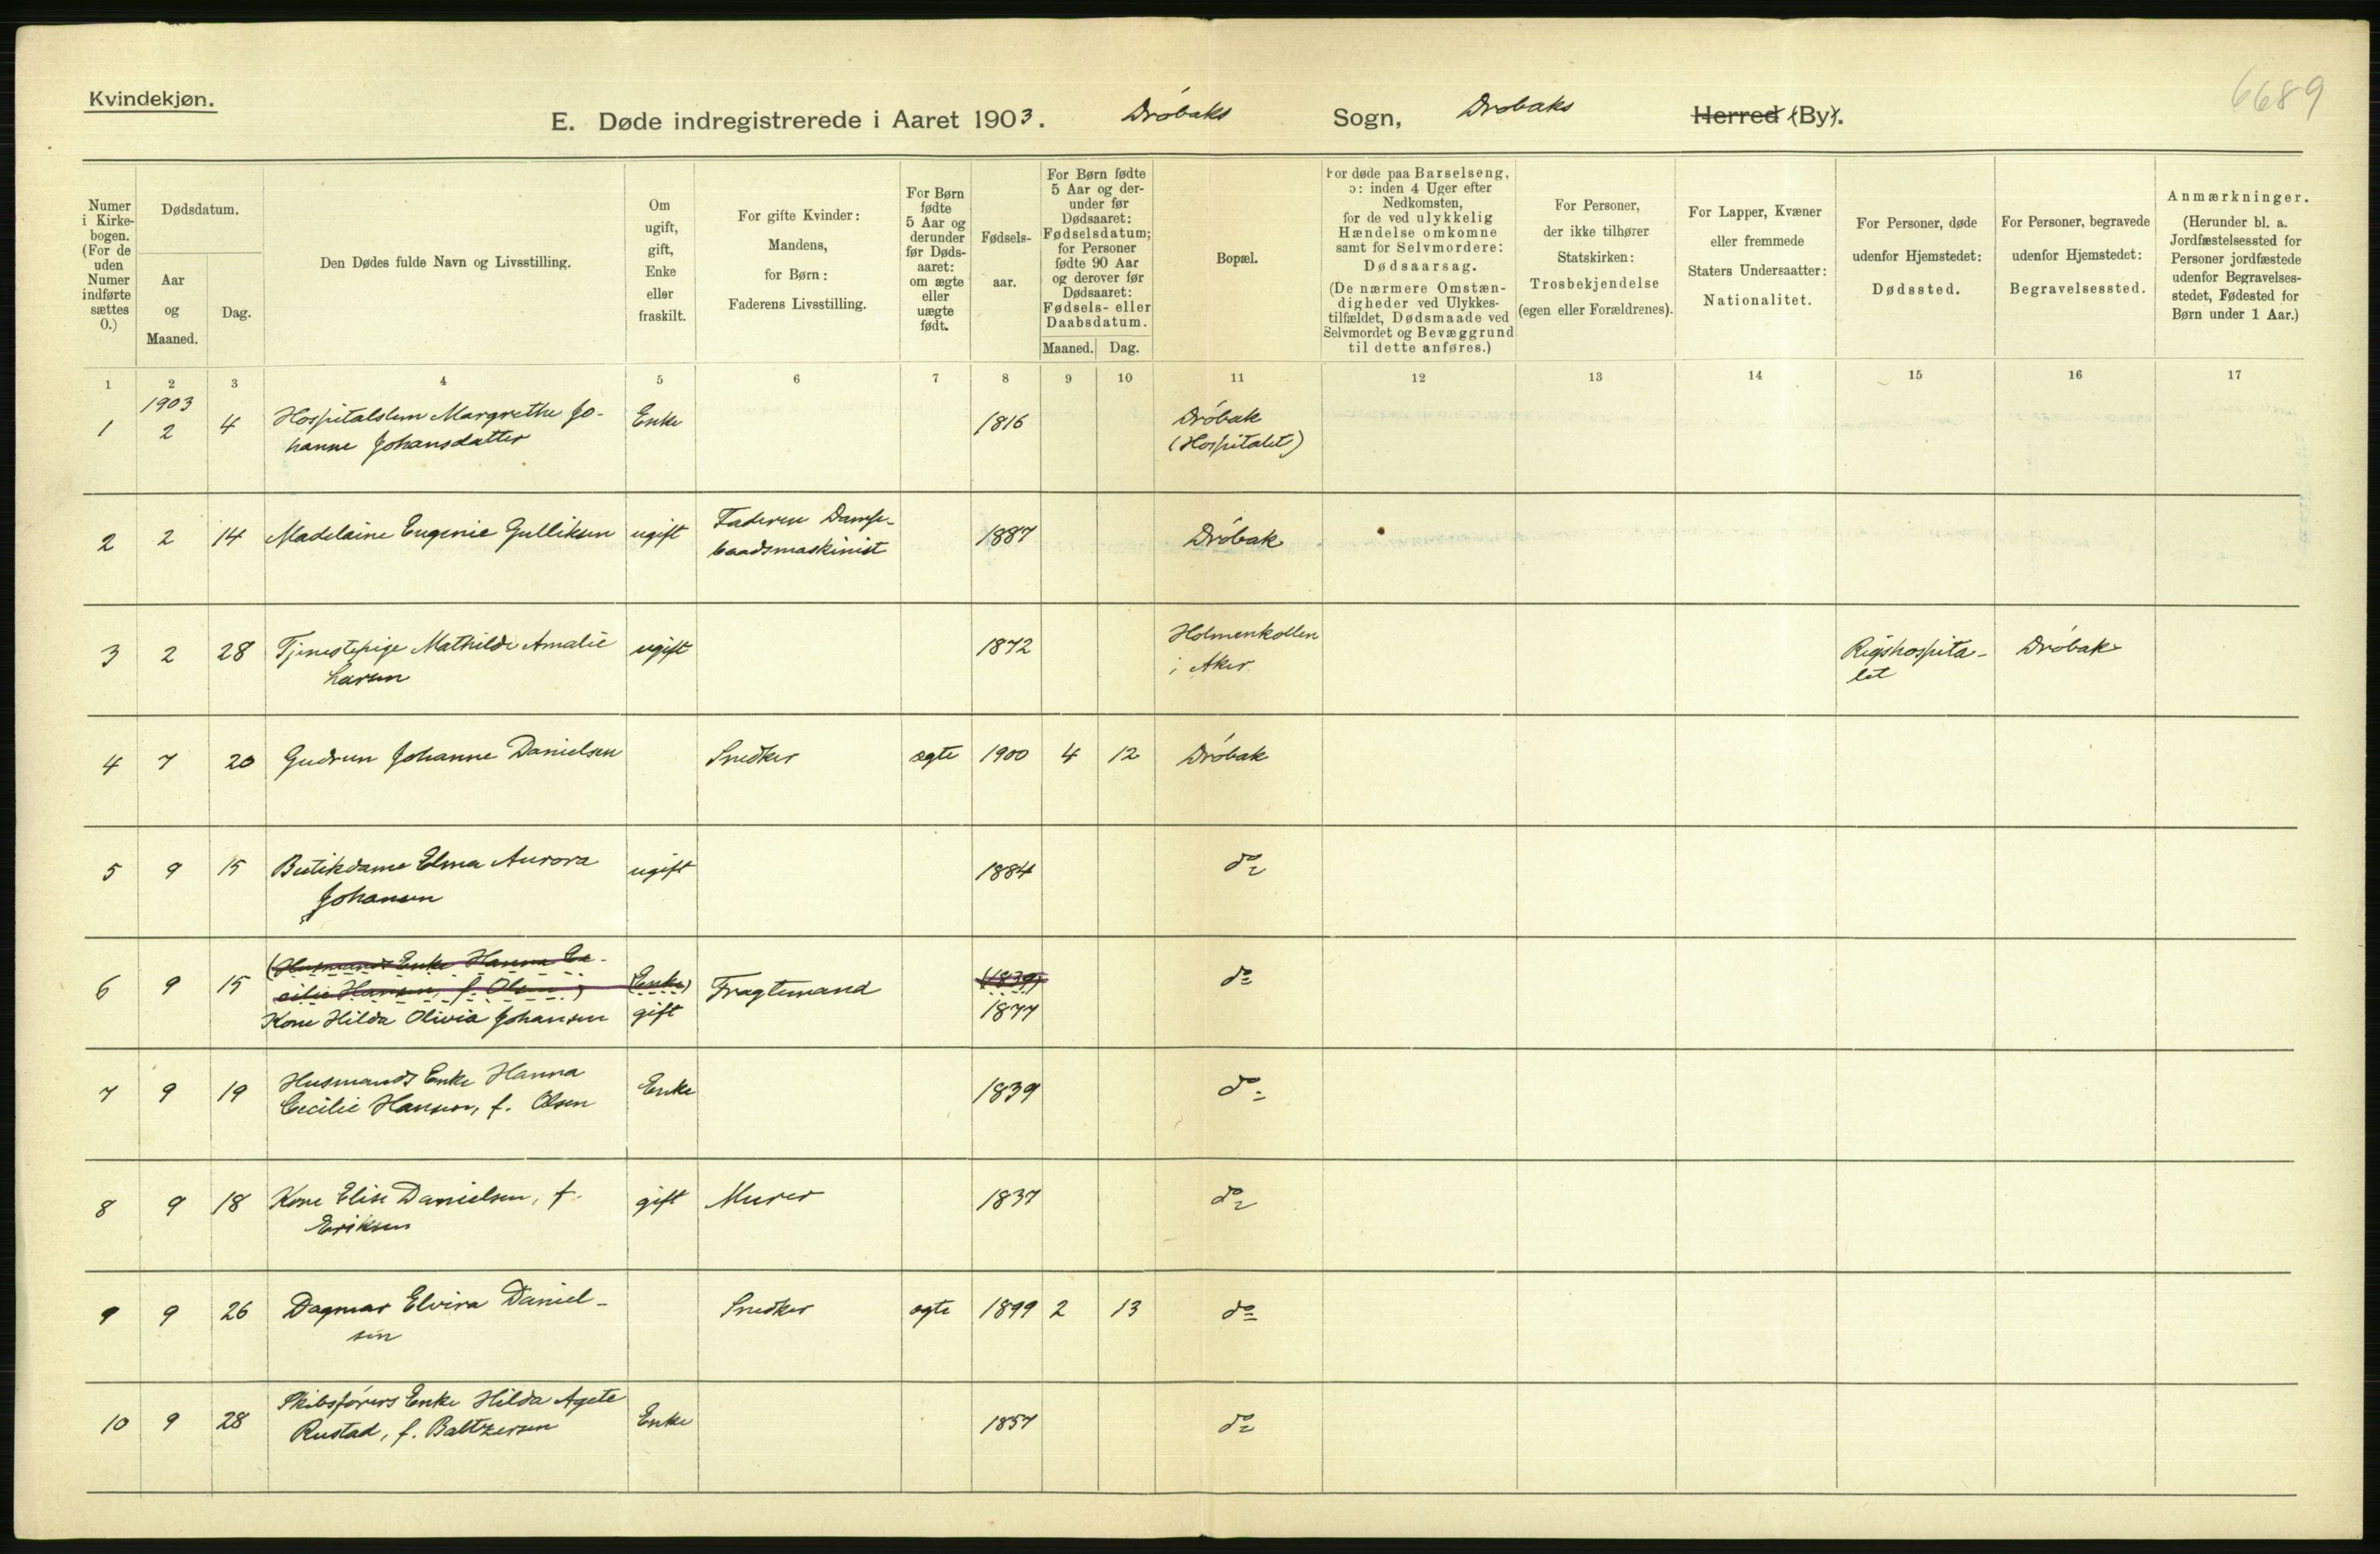 Kvindekjøn.
6689
E. Døde indregistrerede i Aaret 1903. Drøbaks Sogn, Drøbaks Herred (By).
Numer
i Kirke-
bogen.
(For de
uden
Numer
indførte
sættes
0.)
Dødsdatum.
Aar
og
Maaned.
Dag.
Den Dødes fulde Navn og Livsstilling.
Om
ugift,
gift,
Enke
eller
fraskilt.
For gifte Kvinder:
Mandens,
for Børn:
Faderens Livsstilling.
For Børn
fødte
5 Aar og
derunder
før Døds-
aaret:
om ægte
eller
uægte
født.
Fødsels-
aar.
For Børn fødte
5 Aar og der-
under før
Dødsaaret:
Fødselsdatum;
for Personer
fødte 90 Aar
og derover før
Dødsaaret:
Fødsels- eller
Daabsdatum.
Maaned. Dag.
Bopæl.
For døde paa Barselseng,
ɔ: inden 4 Uger efter
Nedkomsten,
for de ved ulykkelig
Hændelse omkomne
samt for Selvmordere:
Dødsaarsag.
(De nærmere Omstæn-
digheder ved Ulykkes-
tilfældet, Dødsmaade ved
Selvmordet og Bevæggrund
til dette anføres.)
For Personer,
der ikke tilhører
Statskirken:
Trosbekjendelse
(egen eller Forældrenes).
For Lapper, Kvæner
eller fremmede
Staters Undersaatter:
Nationalitet.
For Personer, døde
udenfor Hjemstedet:
Dødssted.
For Personer, begravede
udenfor Hjemstedet:
Begravelsessted.
Anmærkninger.
(Herunder bl. a.
Jordfæstelsessted for
Personer jordfæstede
udenfor Begravelses-
stedet, Fødested for
Børn under 1 Aar.)
1 2 3 4 5 6 7 8 9 10 11 12 13 14 15 16 17
1903
1 2 4 Hospitalslem Margrethe Jo- Enke 1816 Drøbak
hanne Johansdatter (Hospitalet)
2 2 14 Madelaine Eugenie Gulliksen ugift Faderen Damp- 1887 Drøbak
baadsmaskinist
3 2 28 Tjenestepige Mathilde Amalie ugift 1872 Holmenkollen Rigshospita- Drøbak
Larsen i Aker let
4 7 20 Gudrun Johanne Danielsen Snedker ægte 1900 4 12 Drøbak
5 9 15 Butikdame Elma Aurora ugift 1884 do
Johansen
(Husmands Enke Hanna Ce- (1839)
6 9 15 cilie Hansen, f. Olsen) (Enke) Fragtemand do
Kone Hilda Olivia Johansen gift 1877
7 9 19 Husmands Enke Hanna Enke 1839 do
Cecilie Hansen, f. Olsen
8 9 18 Kone Elise Danielsen, f. gift Murer 1837 do
Eriksen
9 9 26 Dagmar Elvira Daniel- Snedker ægte 1899 2 13 do
sen
10 9 28 Skibsførers Enke Hilda Agete Enke 1857 do
Rustad, f. Baltzersen